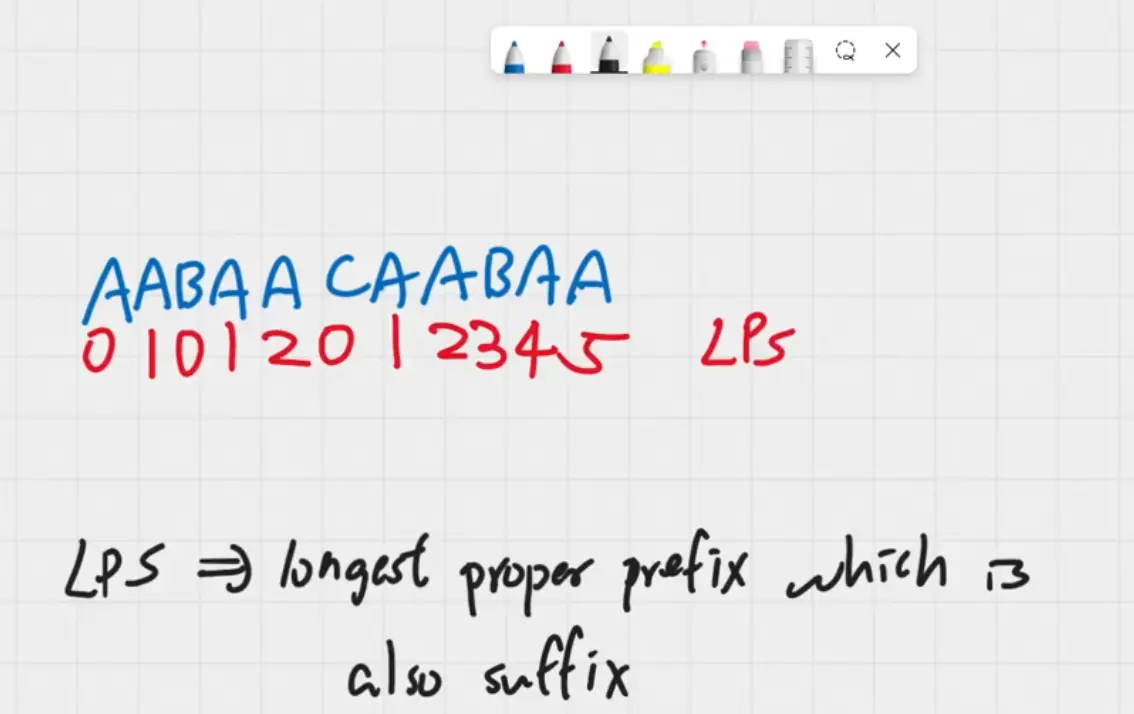 AABAA CAABAA
0 1 0 1 2 0 1 2 3 4 5 LPS
LPS ⇒ longest proper prefix which is
also suffix